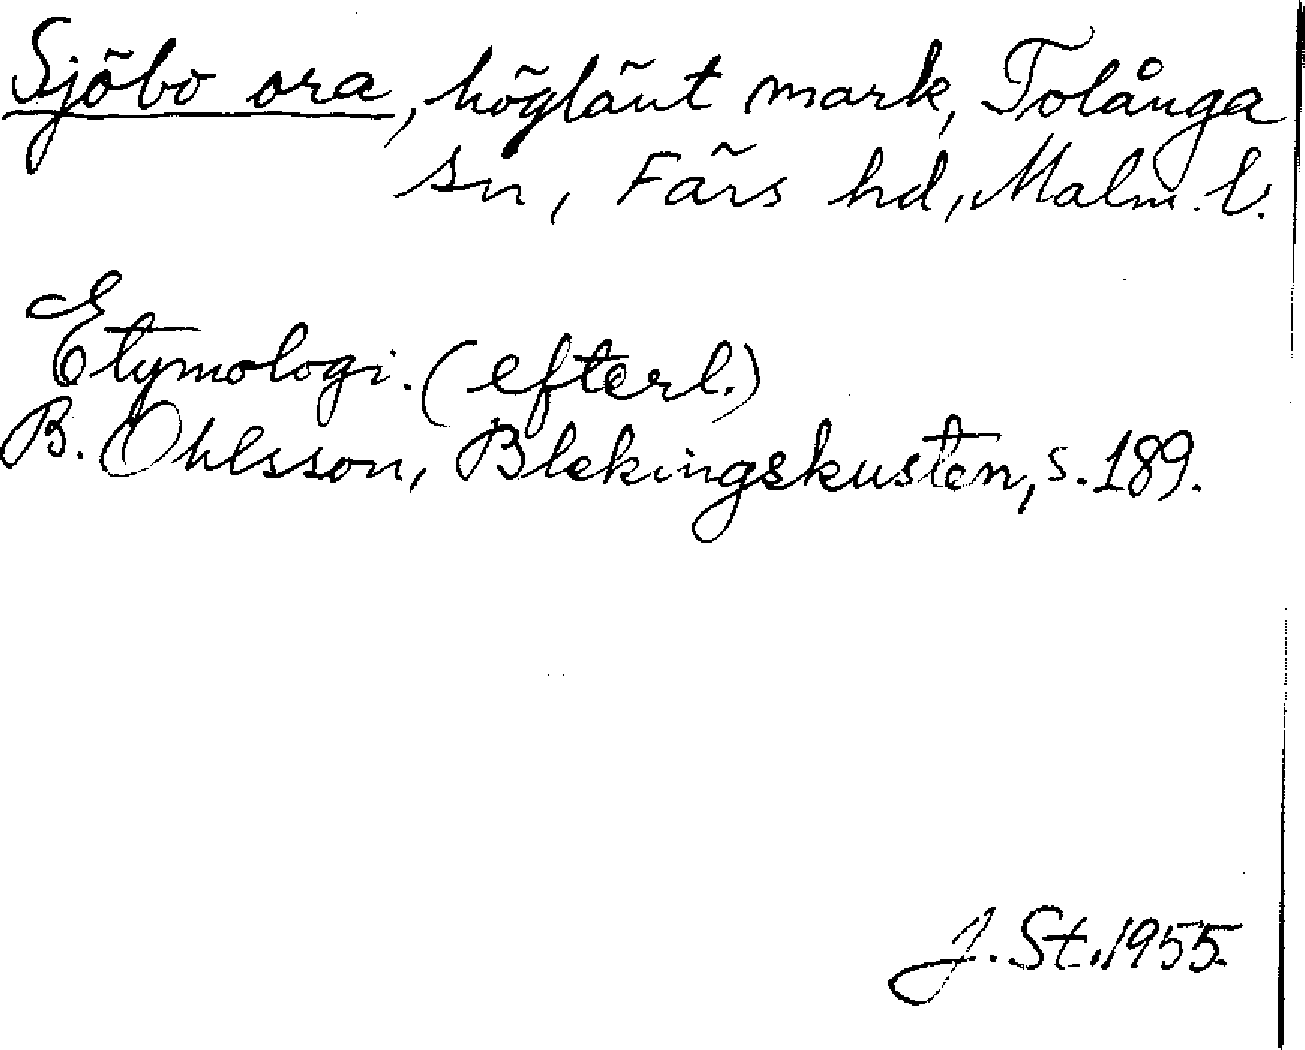 Sjöbo ora, höglänt mark, Tolånga
sn, Färs hd, Malm. l.
Etymologi. (efterl.)
B. Ohlsson, Blekingskusten, s. 189.
J. St. 1955.